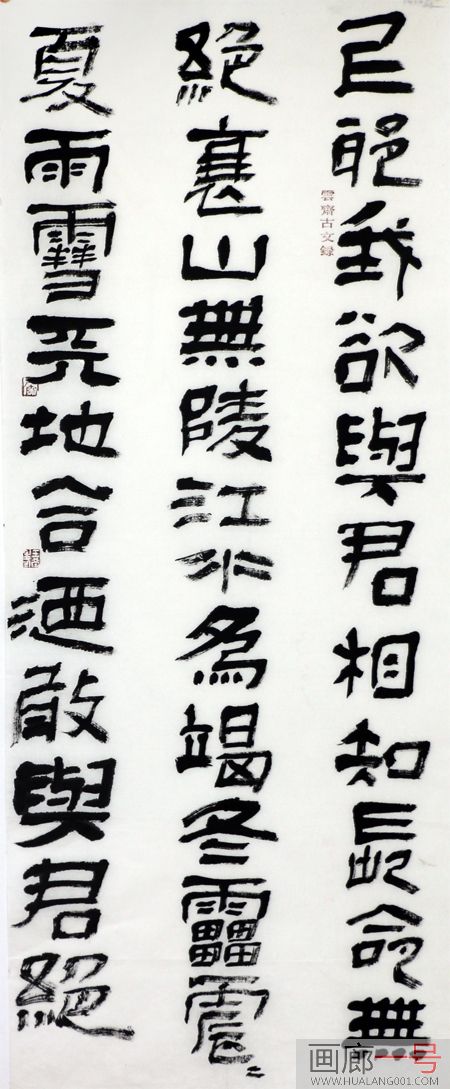 上邪我欲與君相知長命無
絕衰山無陵江水為竭冬靁震〻
夏雨雪天地合迺敢與君絕
雲齋古文録
画廊一号
WWW.HUALANG001.COM